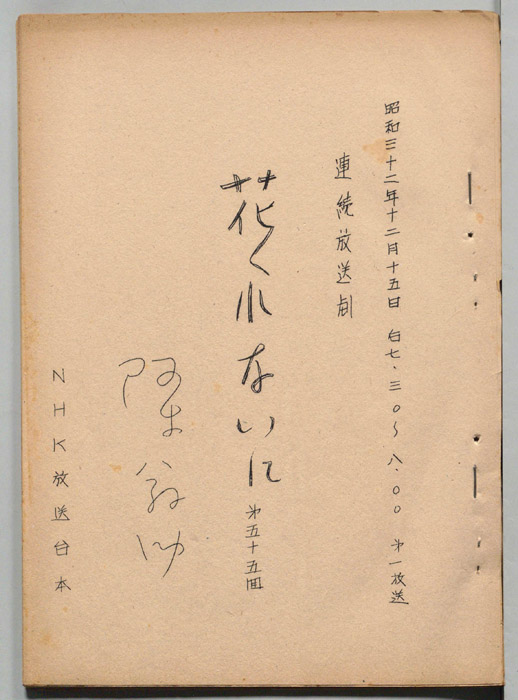 昭和三十二年十二月十五日 自七・三〇〜八・〇〇 第一放送
連続放送劇
花くれないに 第五十五回
NHK放送台本